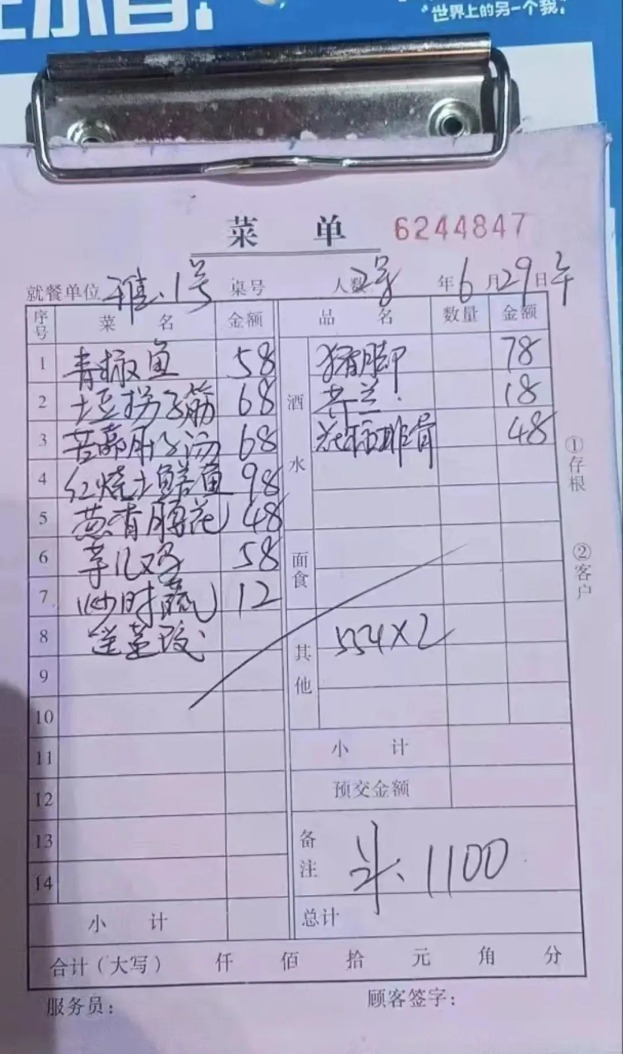 世界上的另一个我。
菜 单 6244847
就餐单位 雅.1号 桌号 人数 2号 年6月29日午
序号 菜 名 金额 品 名 数量 金额
1 青椒鱼 58 酒水 猪脚 78
2 拐子筋 68 芥兰 18
3 苦藠肝子汤 68 排骨 48
4 红烧土鳝鱼 98
5 葱香腰花 48
6 芋儿鸡 58 面食
7 炒时蔬 12
8 送 其他 554×2
9
10
11 小 计
12 预交金额
13 备注 1100
14
小 计 总计
合计(大写) 仟 佰 拾 元 角 分
服务员: 顾客签字:
①存根
②客户